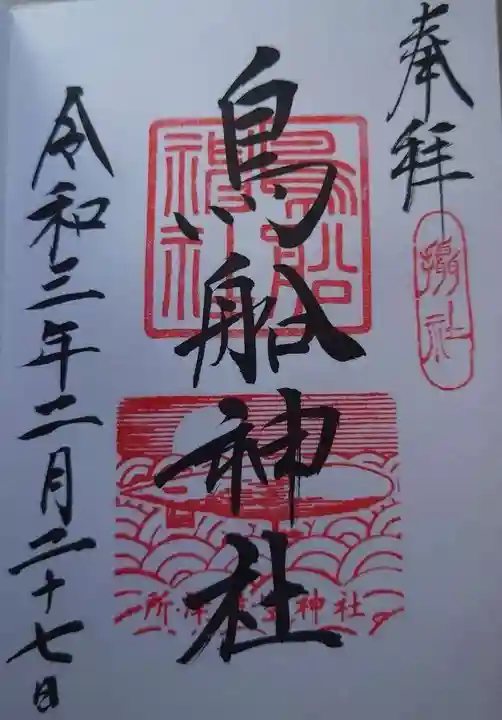 奉拝
摂社
鳥船神社
鳥船
神社
所澤神明社
令和三年二月二十七日